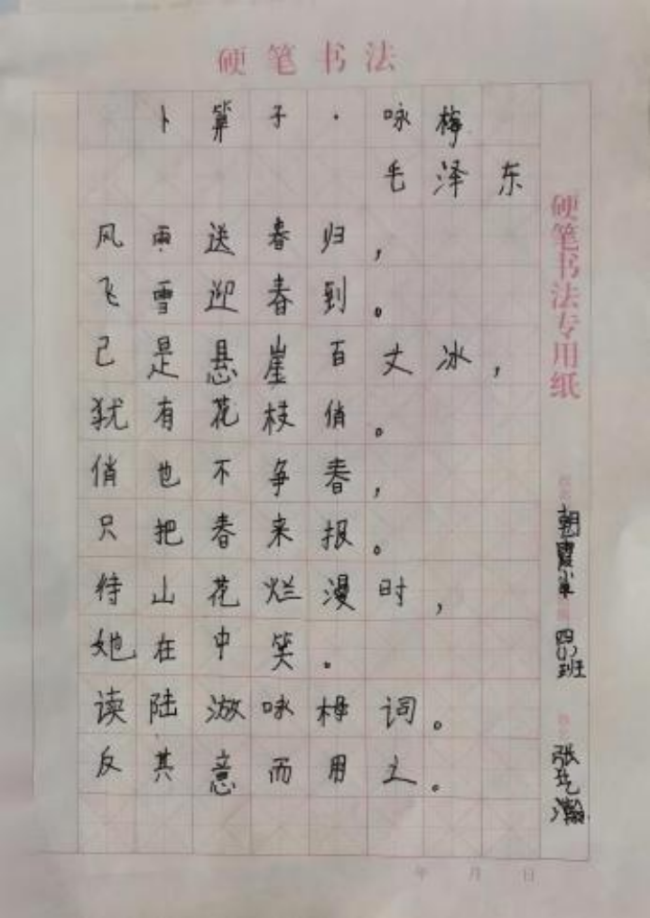 硬笔书法
卜算子·咏梅
毛泽东
风雨送春归，
飞雪迎春到。
已是悬崖百丈冰，
犹有花枝俏。
俏也不争春，
只把春来报。
待山花烂漫时，
她在中笑。
读陆游咏梅词。
反其意而用之。
硬笔书法专用纸
朝霞小学
四(1)班
张
瀚
年 月 日